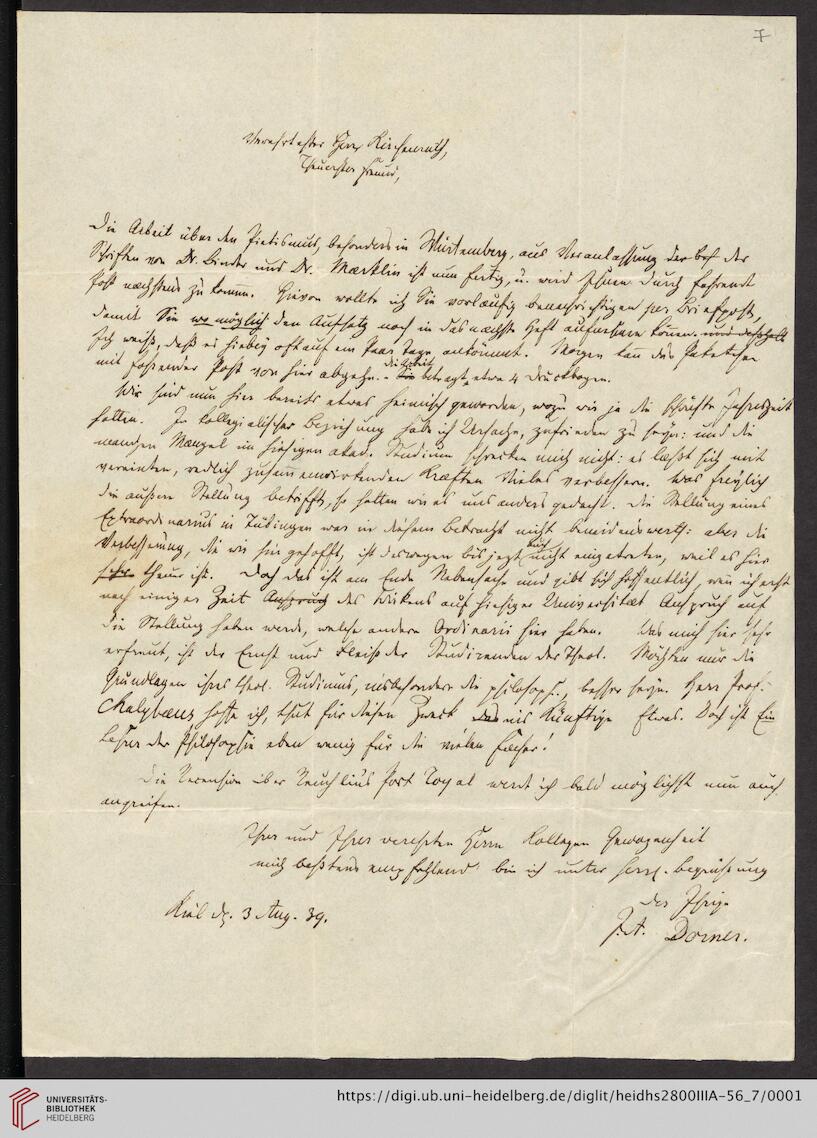 7
Verehrtester Herr Kirchenrath,
Theuerster Freund,
Die Arbeit über den Pietismus, besonders in Würtemberg, aus Veranlassung der der
Schriften von Dr. Binder und Dr. Märklin ist nun fertig, u. wird Ihnen durch fahrende
Post nächstens zukommen. Hievon wollte ich Sie vorläufig benachrichtigen per Briefpost,
damit Sie wo möglich den Aufsatz noch in das nächste Heft aufnehmen können. und deßhalb
Ich weiß, daß es hiebey oft auf ein Paar Tage ankömmt. Morgen kann das Paketchen
mit fahrender Post von hier abgehn. – Sie die Arbeit beträgt etwa 4 Druckbogen.
Wir sind nun hier bereits etwas heimisch geworden, wozu wir ja die schönste Jahreszeit
hatten. In kollegialischer Beziehung habe ich Ursache, zufrieden zu seyn: und die
manchen Mängel im hiesigen akad. Studium schrecken mich nicht: es läßt sich mit
vereinten, redlich zusammenwirkenden Kräften Vieles verbessern. Was freylich
die äußere Stellung betrifft, so hatten wir es uns anders gedacht. Die Stellung eines
Extraordinarius in Tübingen war in diesem Betracht nicht beneidenswerth: aber die
Verbesserung, die wir hier gehofft, ist deswegen bis jezt noch nicht eingetreten, weil es hier
sehr theuer ist. Doch das ist am Ende Nebensache und gibt sich hoffentlich, wenn ich erst
nach einiger Zeit Anspruch des Wirkens auf hiesiger Universität Anspruch auf
die Stellung haben werde, welche andere Ordinarii hier haben. Was mich hier sehr
erfreut, ist der Ernst und Fleiß der Studirenden der Theol. Möchten nur die
Grundlagen ihres theol. Studiums, insbesondere die philosoph., besser seyn. Herr Prof.
Chalybaeus hoffe ich, thut für diesen Zweck ins Künftige Etwas. Doch ist Ein
Lehrer der Philosophie eben wenig für die vielen Fächer!
Die Recension über Reuchlins Port Royal werde ich bald möglichst nun auch
angreifen.
Ihrer und Ihres verehrten Herrn Kollegen Gewogenheit
mich bestens empfehlend bin ich unter herzl. Begrüßung
der Ihrige
Kiel d. 3 Aug. 39.
J. A. Dorner.
UNIVERSITÄTS-
BIBLIOTHEK
HEIDELBERG
https://digi.ub.uni-heidelberg.de/diglit/heidhs2800IIIA-56_7/0001